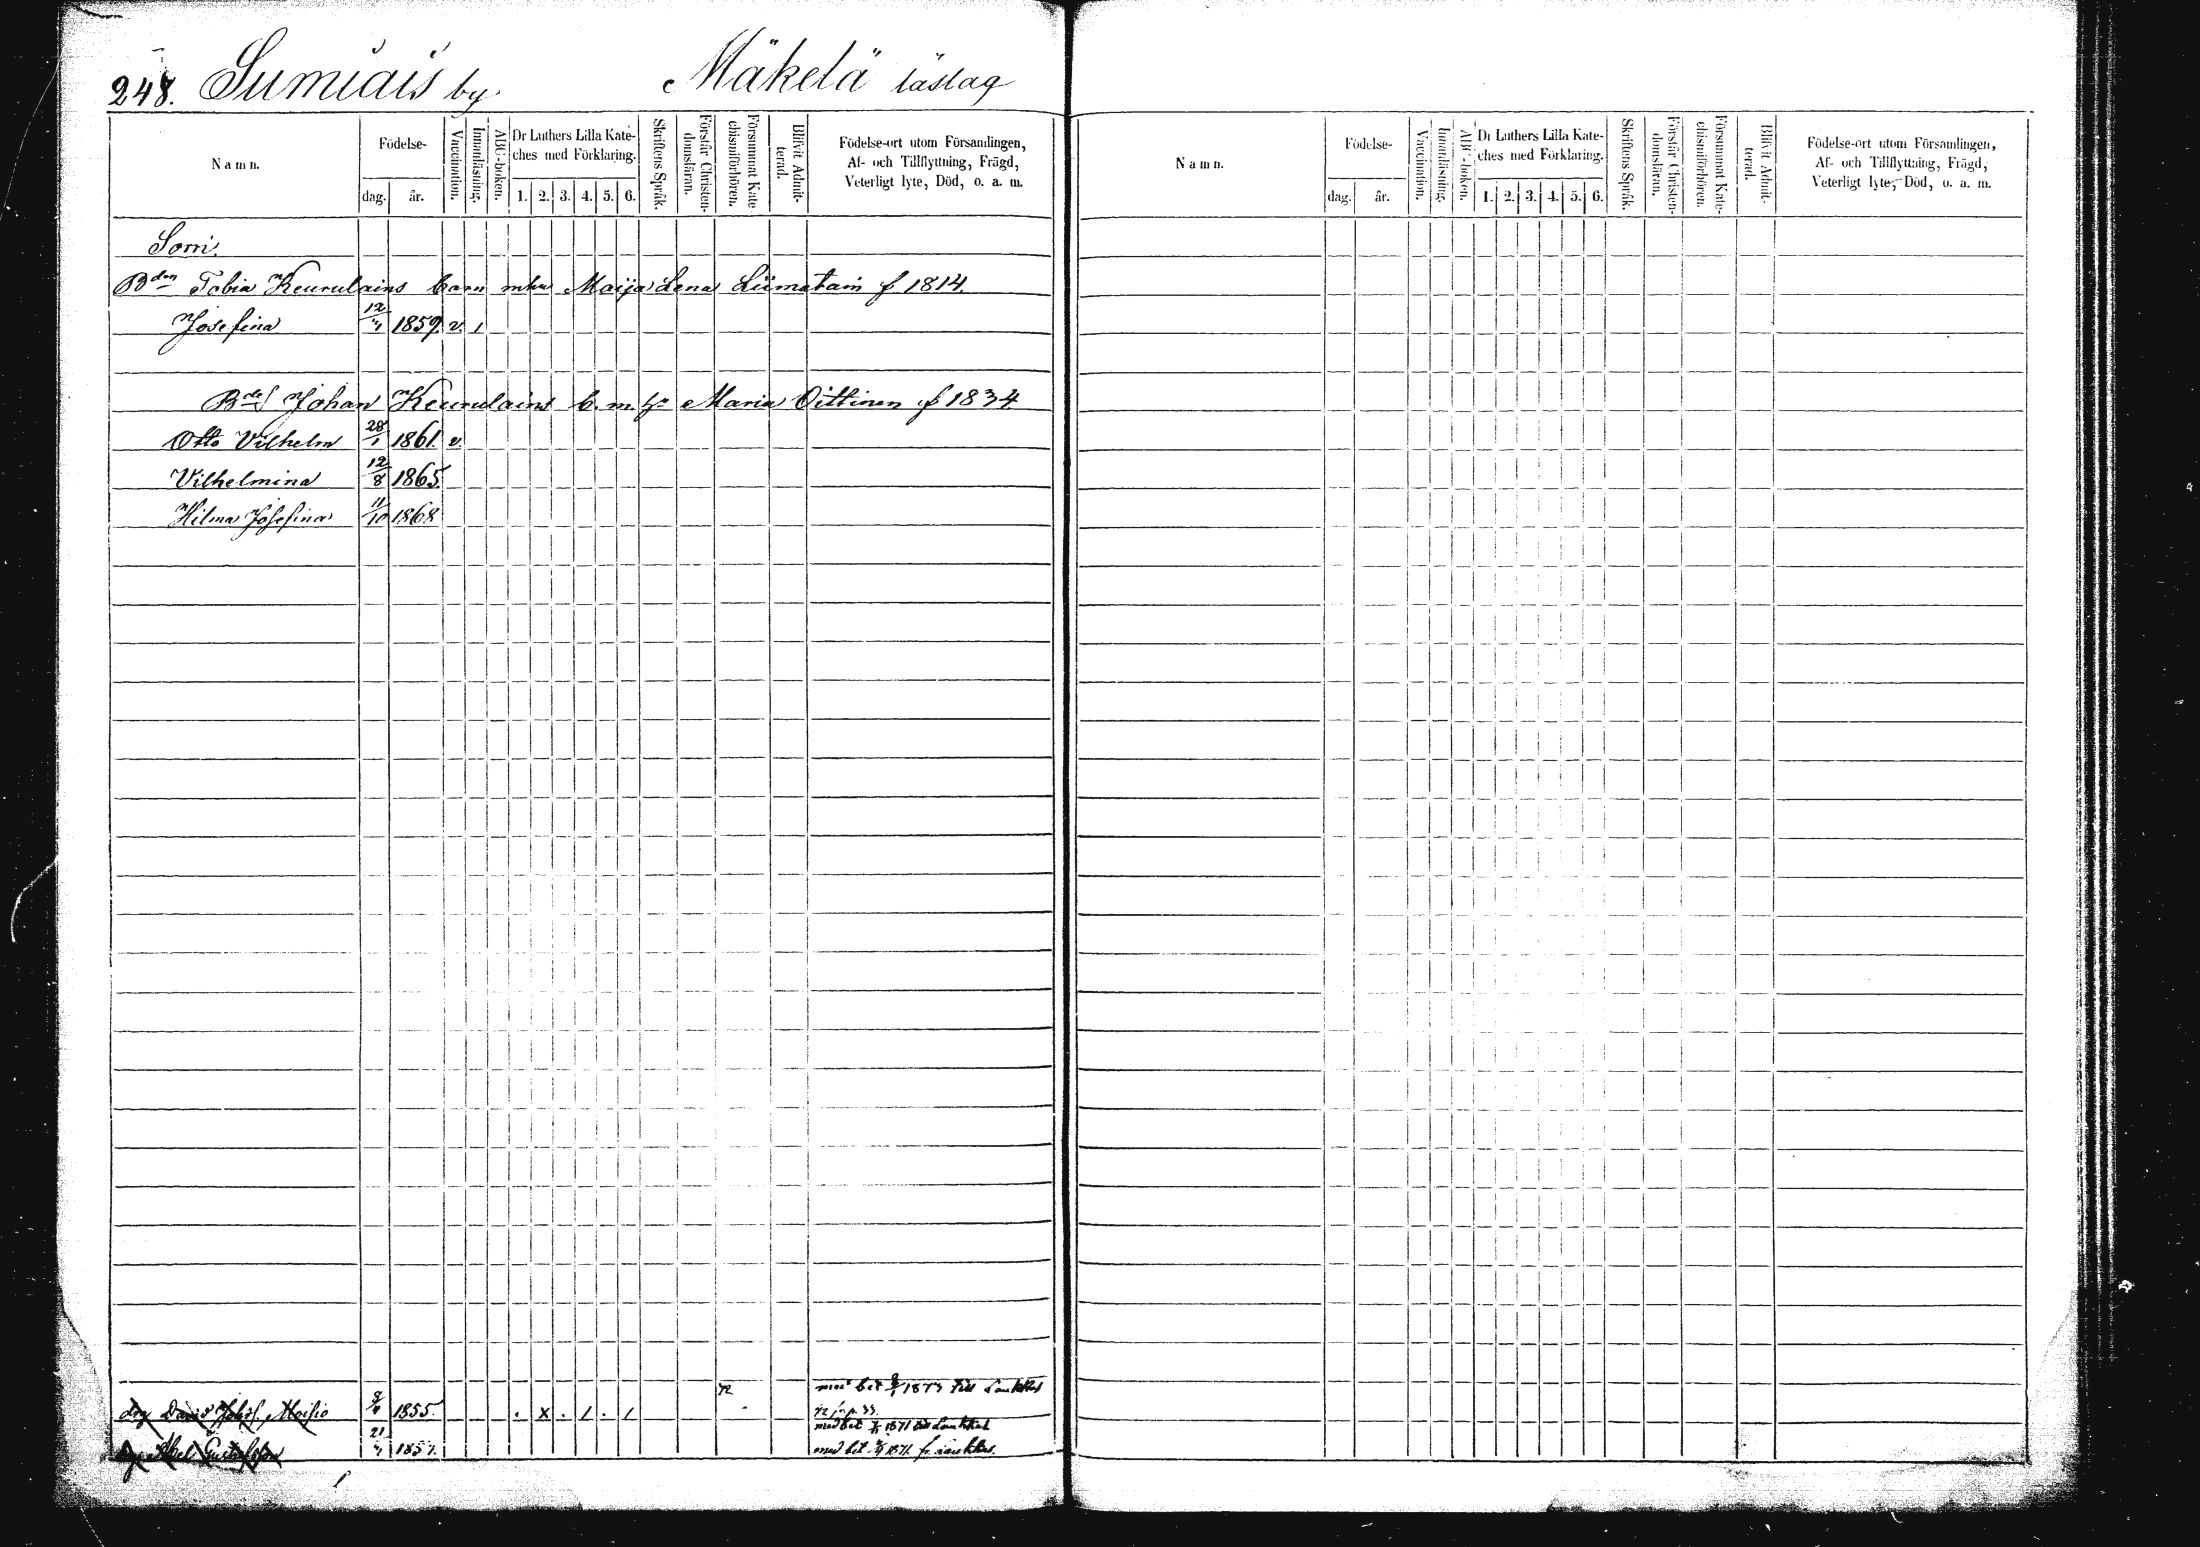 248. Sumiais by. Mäkelä läslag
Namn.
Födelse-
dag. år.
Vaccination.
Innanläsning.
ABC-boken.
Dr Luthers Lilla Kate-
ches med Förklaring.
1. 2. 3. 4. 5. 6.
Skriftens Språk.
Förstår Christen-
domsläran.
Försummat Kate-
chismiförhören.
Blifvit Admit-
terad.
Födelse-ort utom Församlingen,
Af- och Tillflyttning, Frägd,
Veterligt lyte, Död, o. a. m.
Sorri.
Bden Tobia Keurulains barn mhu Maija Lena Liimatain f 1814.
Josefina 12/4 1859. v. 1
Johan Keurulains b. m. h. Maria Oittinen f 1834
Otto Vilhelm 28/1 1861. v.
Vilhelmina 12/8 1865.
Hilma Josefina 11/10 1868
med bet 1873 till Laukkas
drg David Johss. Moisio 1855. . x . 1 . 1
med bet 1871 till Laukkas
Abel Gustafsson 21 1857. med bet 1871. fr. Laukkas.
Namn.
Födelse-
dag. år.
Vaccination.
Innanläsning.
ABC-boken.
Dr Luthers Lilla Kate-
ches med Förklaring.
1. 2. 3. 4. 5. 6.
Skriftens Språk.
Förstår Christen-
domsläran.
Försummat Kate-
chismiförhören.
Blifvit Admit-
terad.
Födelse-ort utom Församlingen,
Af- och Tillflyttning, Frägd,
Veterligt lyte, Död, o. a. m.